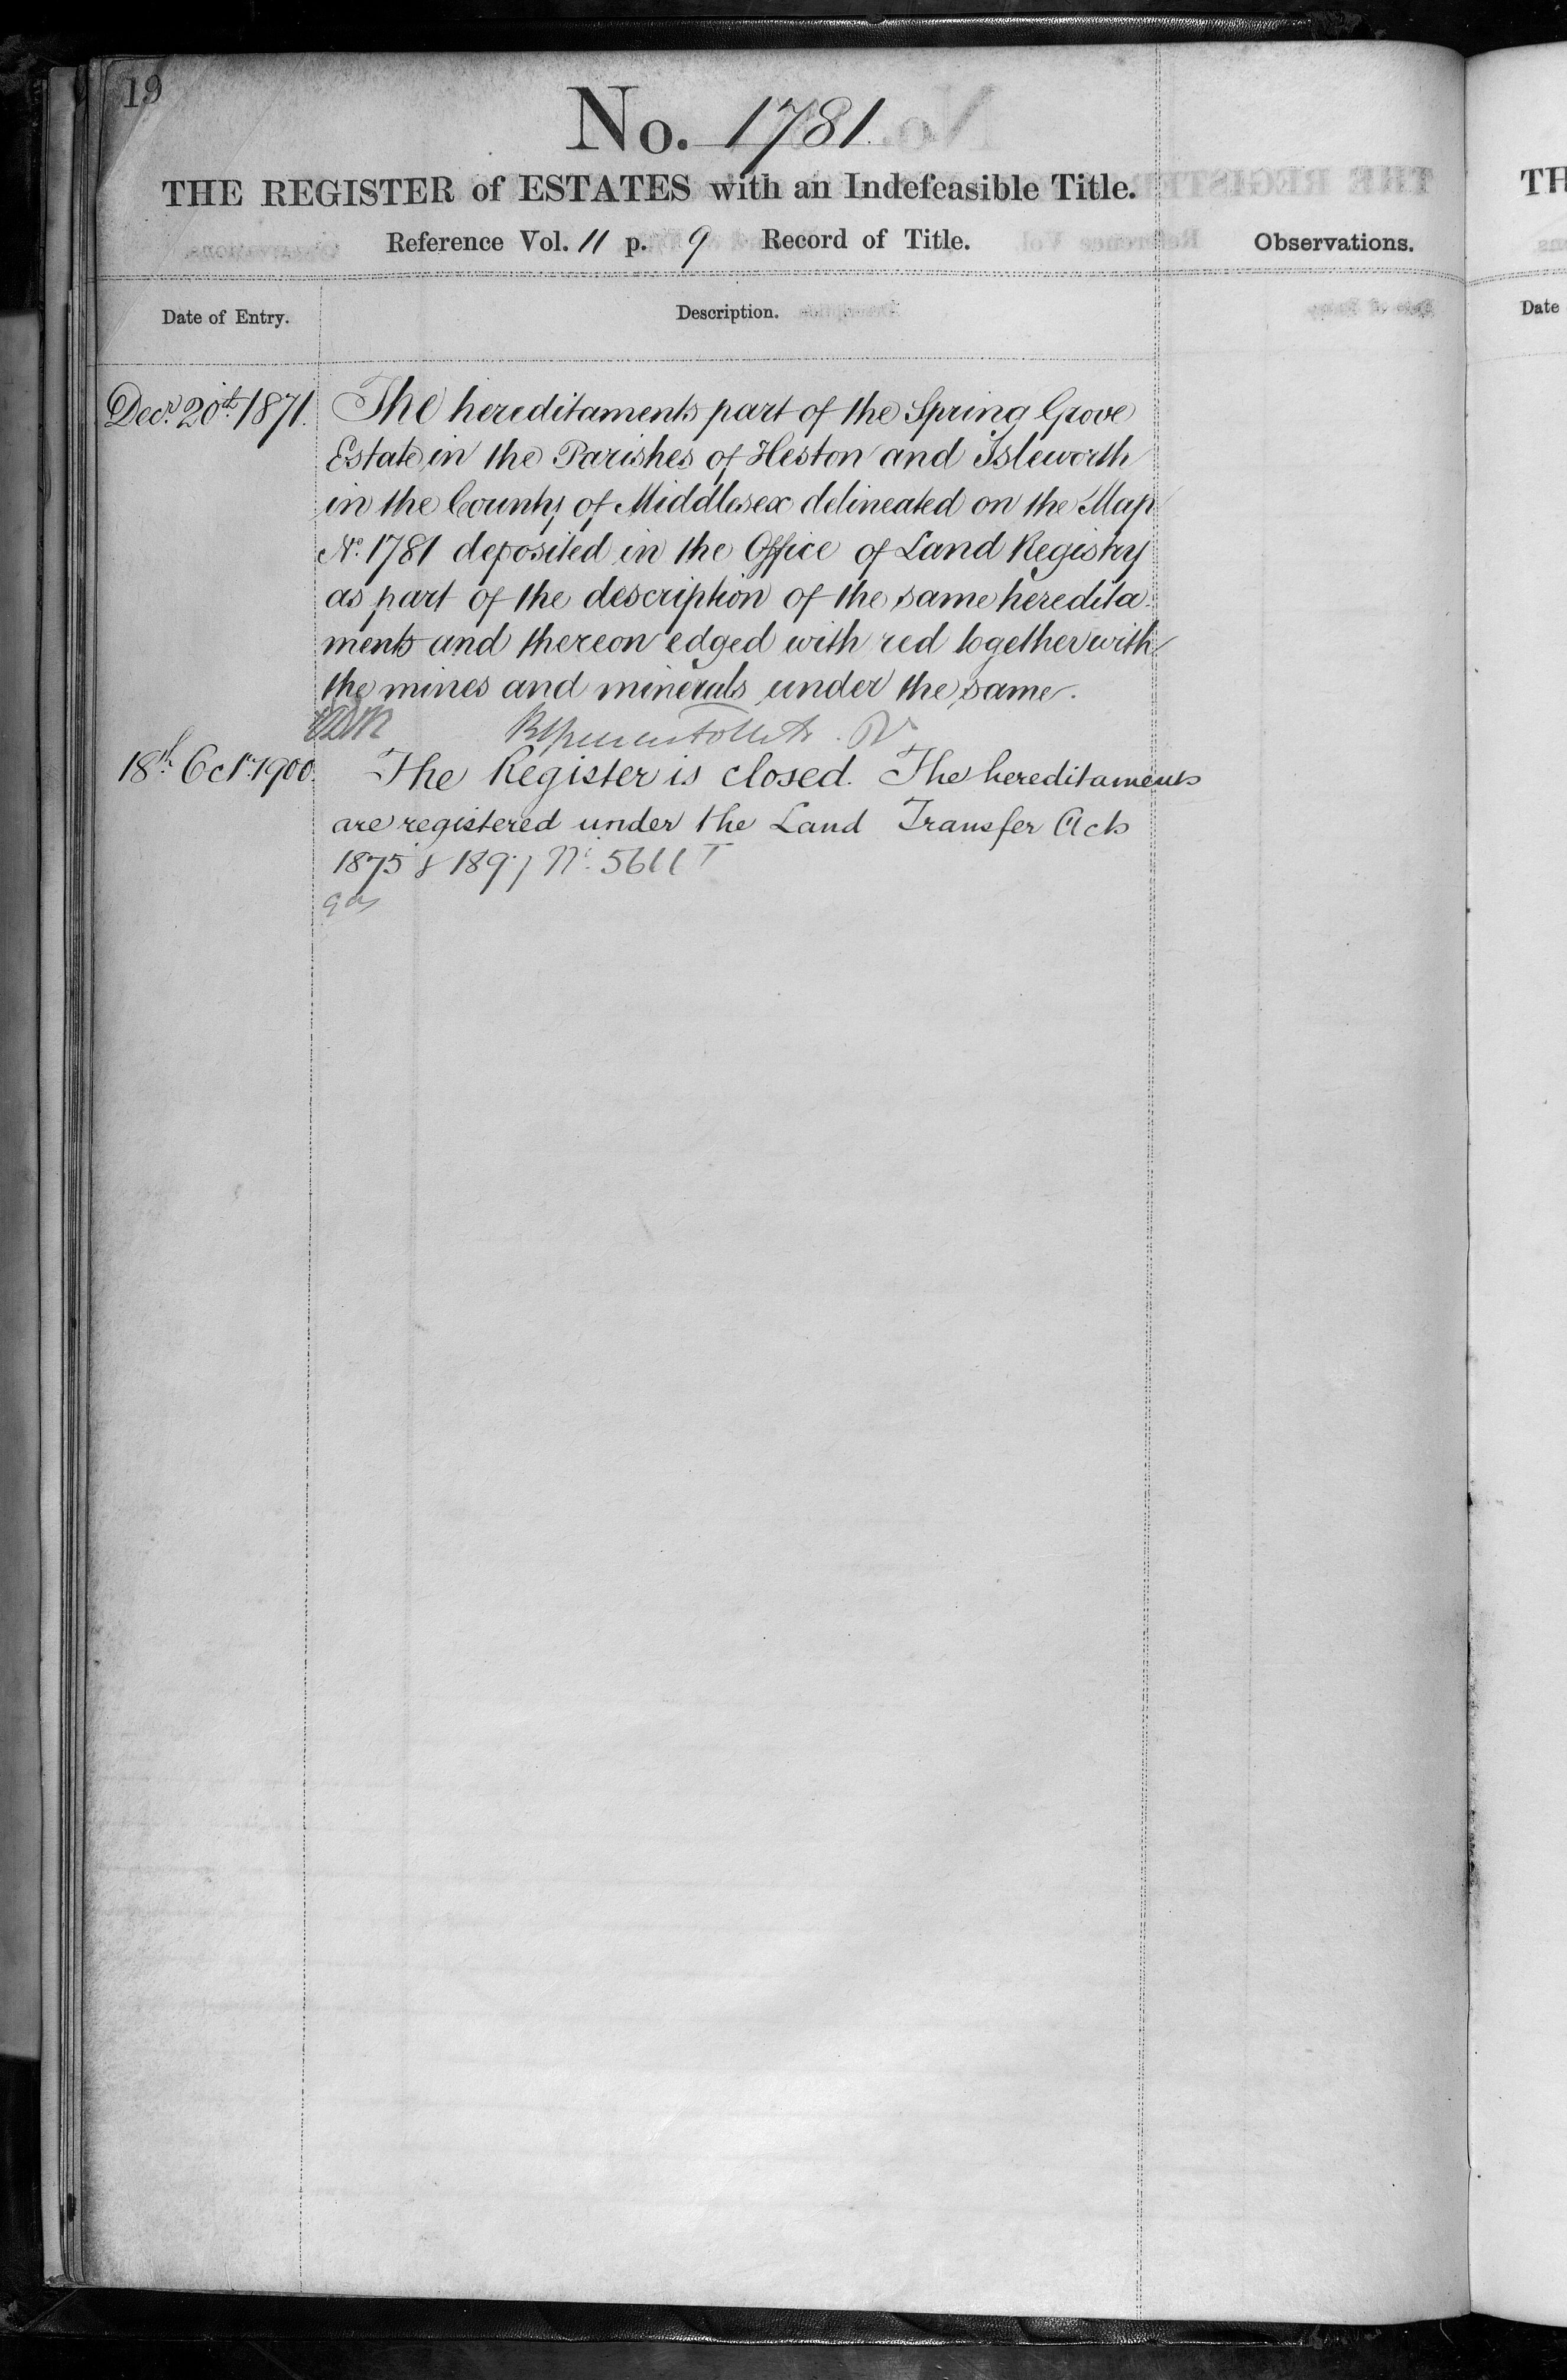 19
No. 1781.
THE REGISTER of ESTATES with an Indefeasible Title.
Reference Vol. 11 p. 9 Record of Title.
Observations.
Date of Entry.
Description.
Decr. 20th 1871.
The hereditaments part of the Spring Grove
Estate in the Parishes of Heston and Isleworth
in the County of Middlesex delineated on the Map
No. 1781 deposited in the Office of Land Registry
as part of the description of the same heredita-
ments and thereon edged with red together with
the mines and minerals under the same.
18th Oct. 1900.
The Register is closed. The hereditaments
are registered under the Land Transfer Acts
1875 & 1897 No. 5611
TH
Date